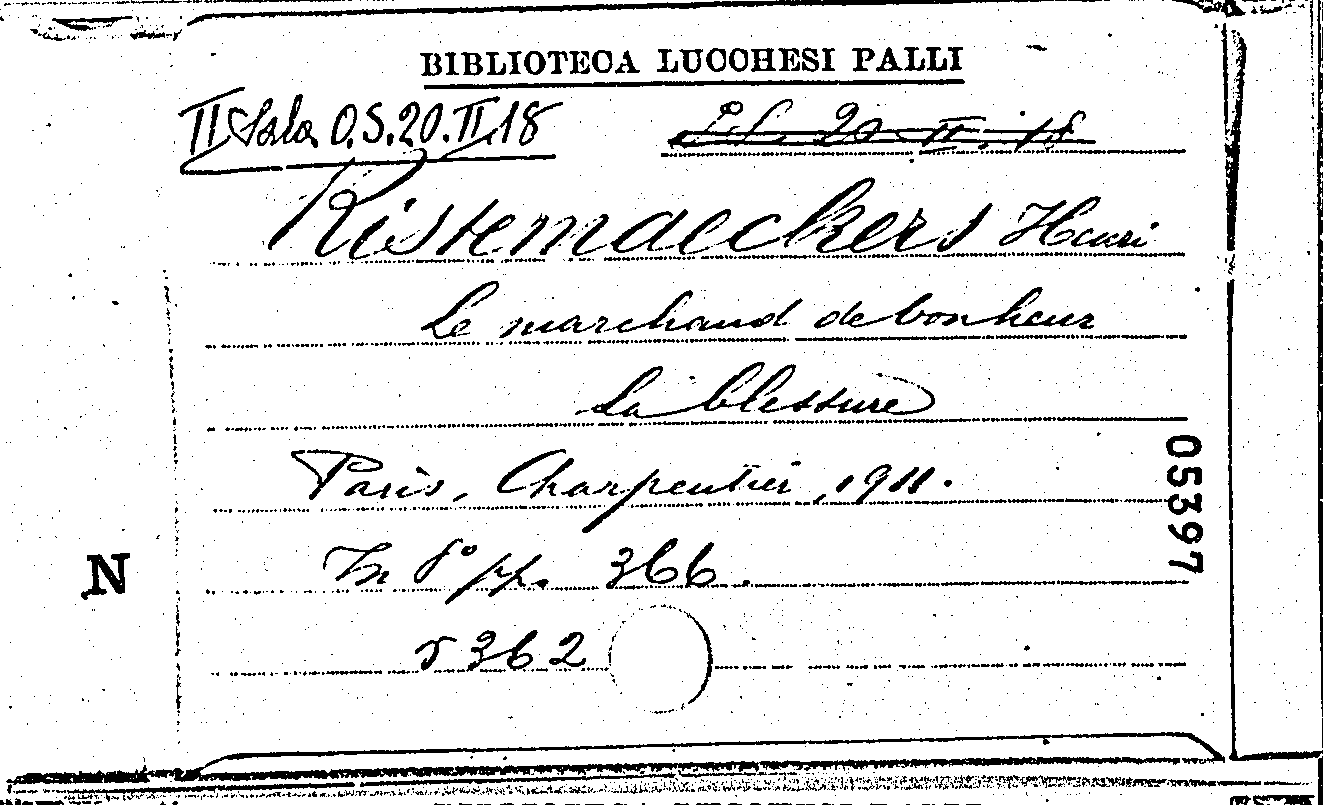 BIBLIOTECA LUCCHESI PALLI
II Sala O.S.20.II.18
20 II. 18
Kistemaeckers Henri
Le marchand de bonheur
La blessure
Paris, Charpentier, 1911.
In 8° pp. 366.
5362
05397
N